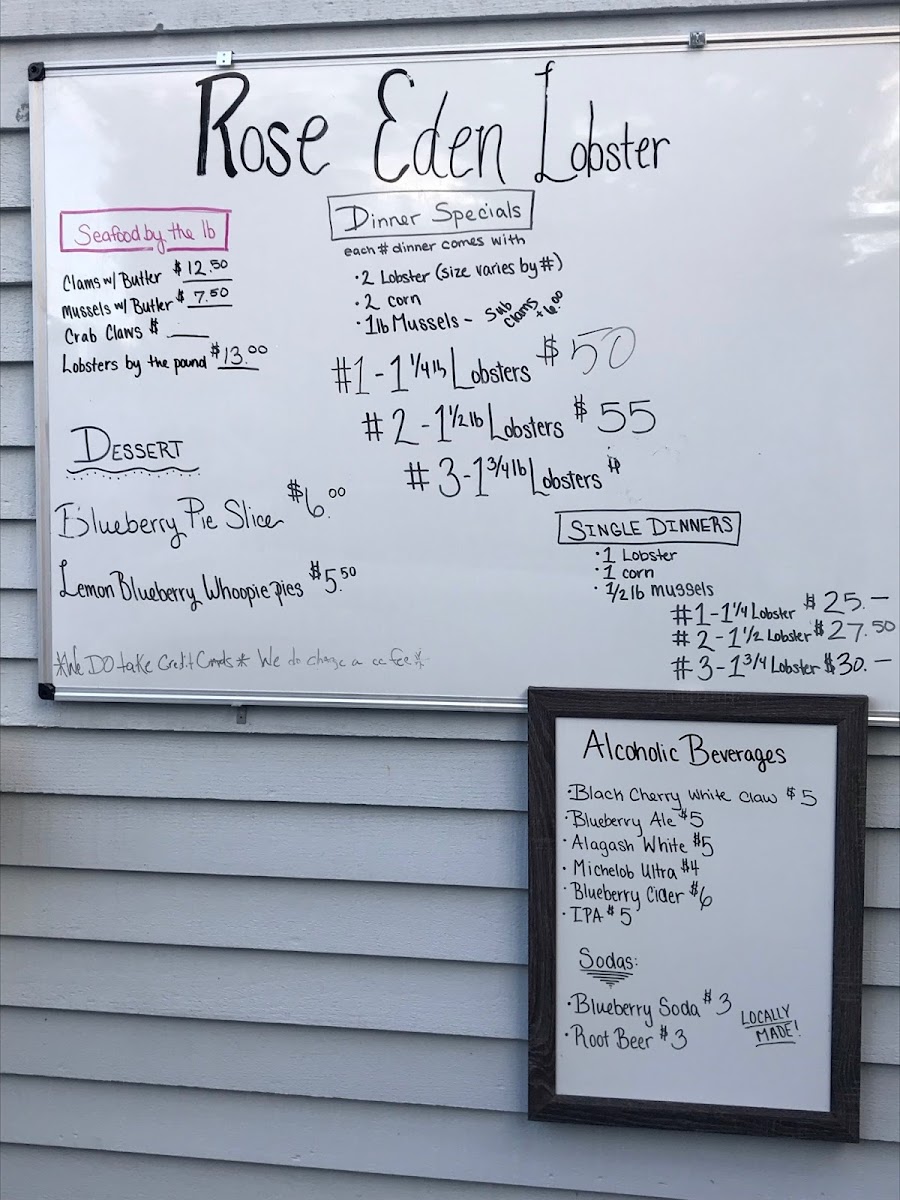 Rose Eden Lobster
Seafood by the lb
Clams w/ Butter $12.50
Mussels w/ Butter $7.50
Crab Claws $
Lobsters by the pound $13.00
Dessert
Blueberry Pie Slice $6.00
Lemon Blueberry Whoopie pies $5.50
*We DO take Credit Cards* We do charge a cc fee*
Dinner Specials
each # dinner comes with
· 2 Lobster (size varies by #)
· 2 corn
· 1lb Mussels - Sub clams + 6.00
#1 - 1 1/4 lb Lobsters $50
#2 - 1 1/2 lb Lobsters $55
#3 - 1 3/4 lb Lobsters $
SINGLE DINNERS
· 1 Lobster
· 1 corn
· 1/2 lb mussels
#1 - 1 1/4 Lobster $25.—
#2 - 1 1/2 Lobster $27.50
#3 - 1 3/4 Lobster $30.—
Alcoholic Beverages
· Blach Cherry White Claw $5
· Blueberry Ale $5
· Alagash White $5
· Michelob Ultra $4
· Blueberry Cider $6
· IPA $5
Sodas:
· Blueberry Soda $3
· Root Beer $3
LOCALLY
MADE!